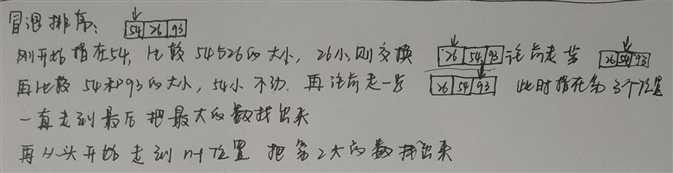 冒泡排序: 54 26 93
刚开始指在54, 比较 54与26的大小, 26小则交换 26 54 93 往前走一步 26 54 93
再比较 54和93的大小, 54小 不动. 再往前走一步 26 54 93 此时指在第3个位置
一直走到最后 把最大的数找出来
再从头开始 走到 n-1位置 把第2大的数找出来